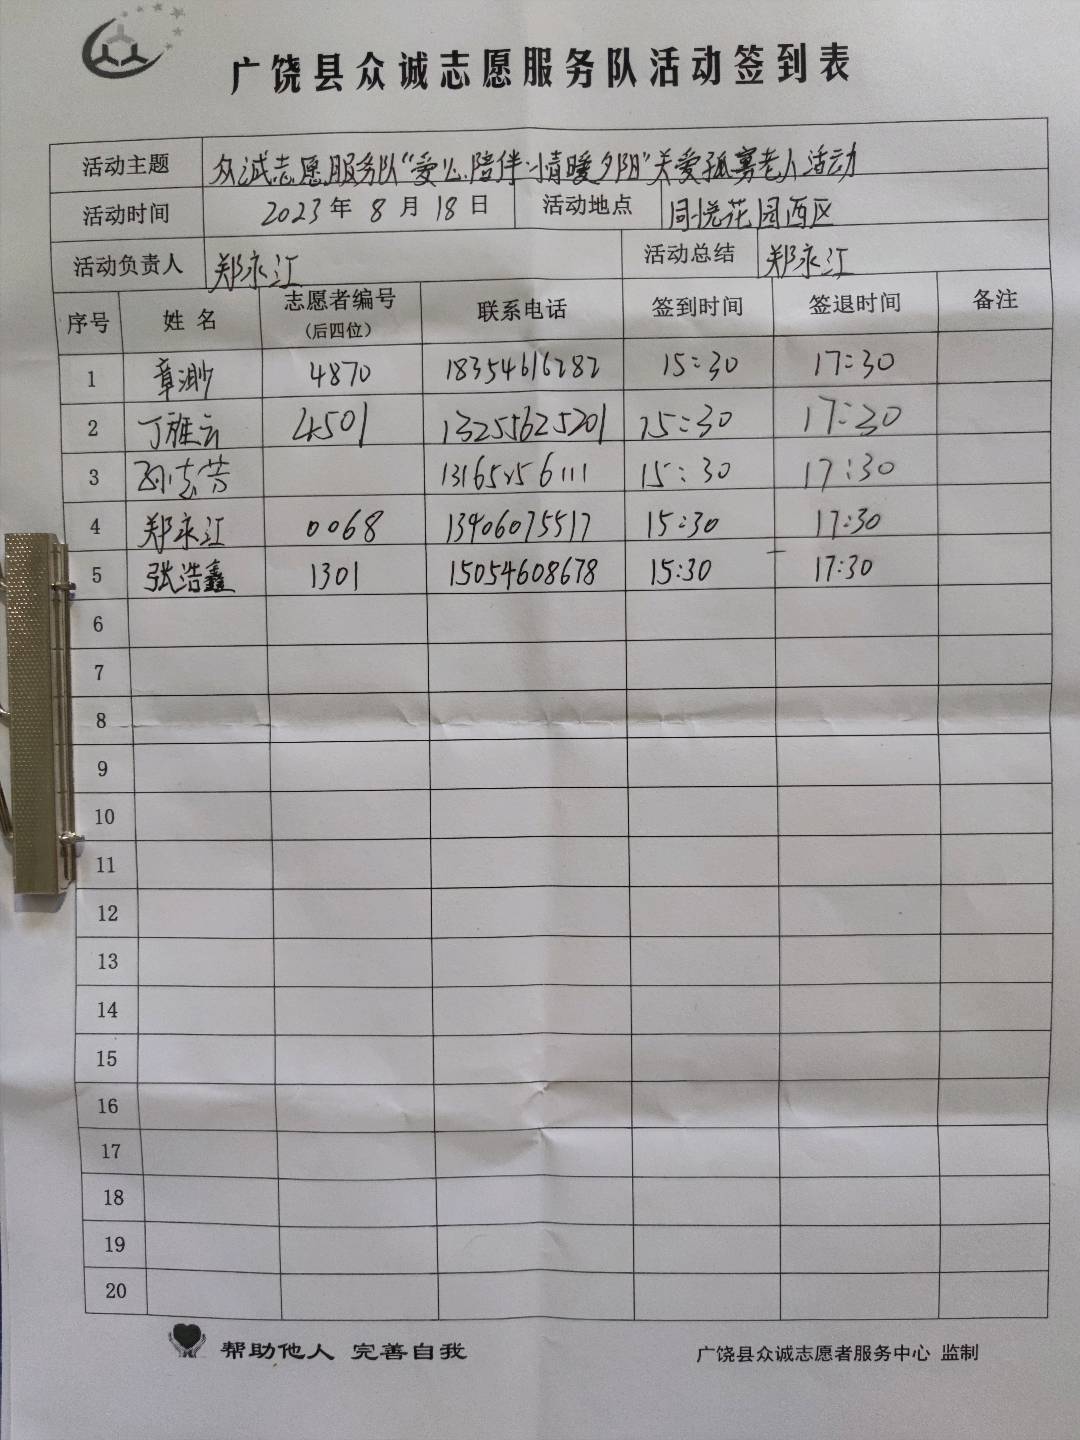 广饶县众诚志愿服务队活动签到表
活动主题 众诚志愿服务队“爱心陪伴·情暖夕阳”关爱孤寡老人活动
活动时间 2023年8月18日 活动地点 同悦花园西区
活动负责人 郑永江 活动总结 郑永江
序号 姓名 志愿者编号 联系电话 签到时间 签退时间 备注
(后四位)
1 章渺 4870 18354616282 15:30 17:30
2 丁雅云 4501 13255625201 15:30 17:30
3 15:30 17:30
4 郑永江 0068 13406075517 15:30 17:30
5 张浩鑫 1301 15054608678 15:30 17:30
6
7
8
9
10
11
12
13
14
15
16
17
18
19
20
帮助他人 完善自我 广饶县众诚志愿者服务中心 监制